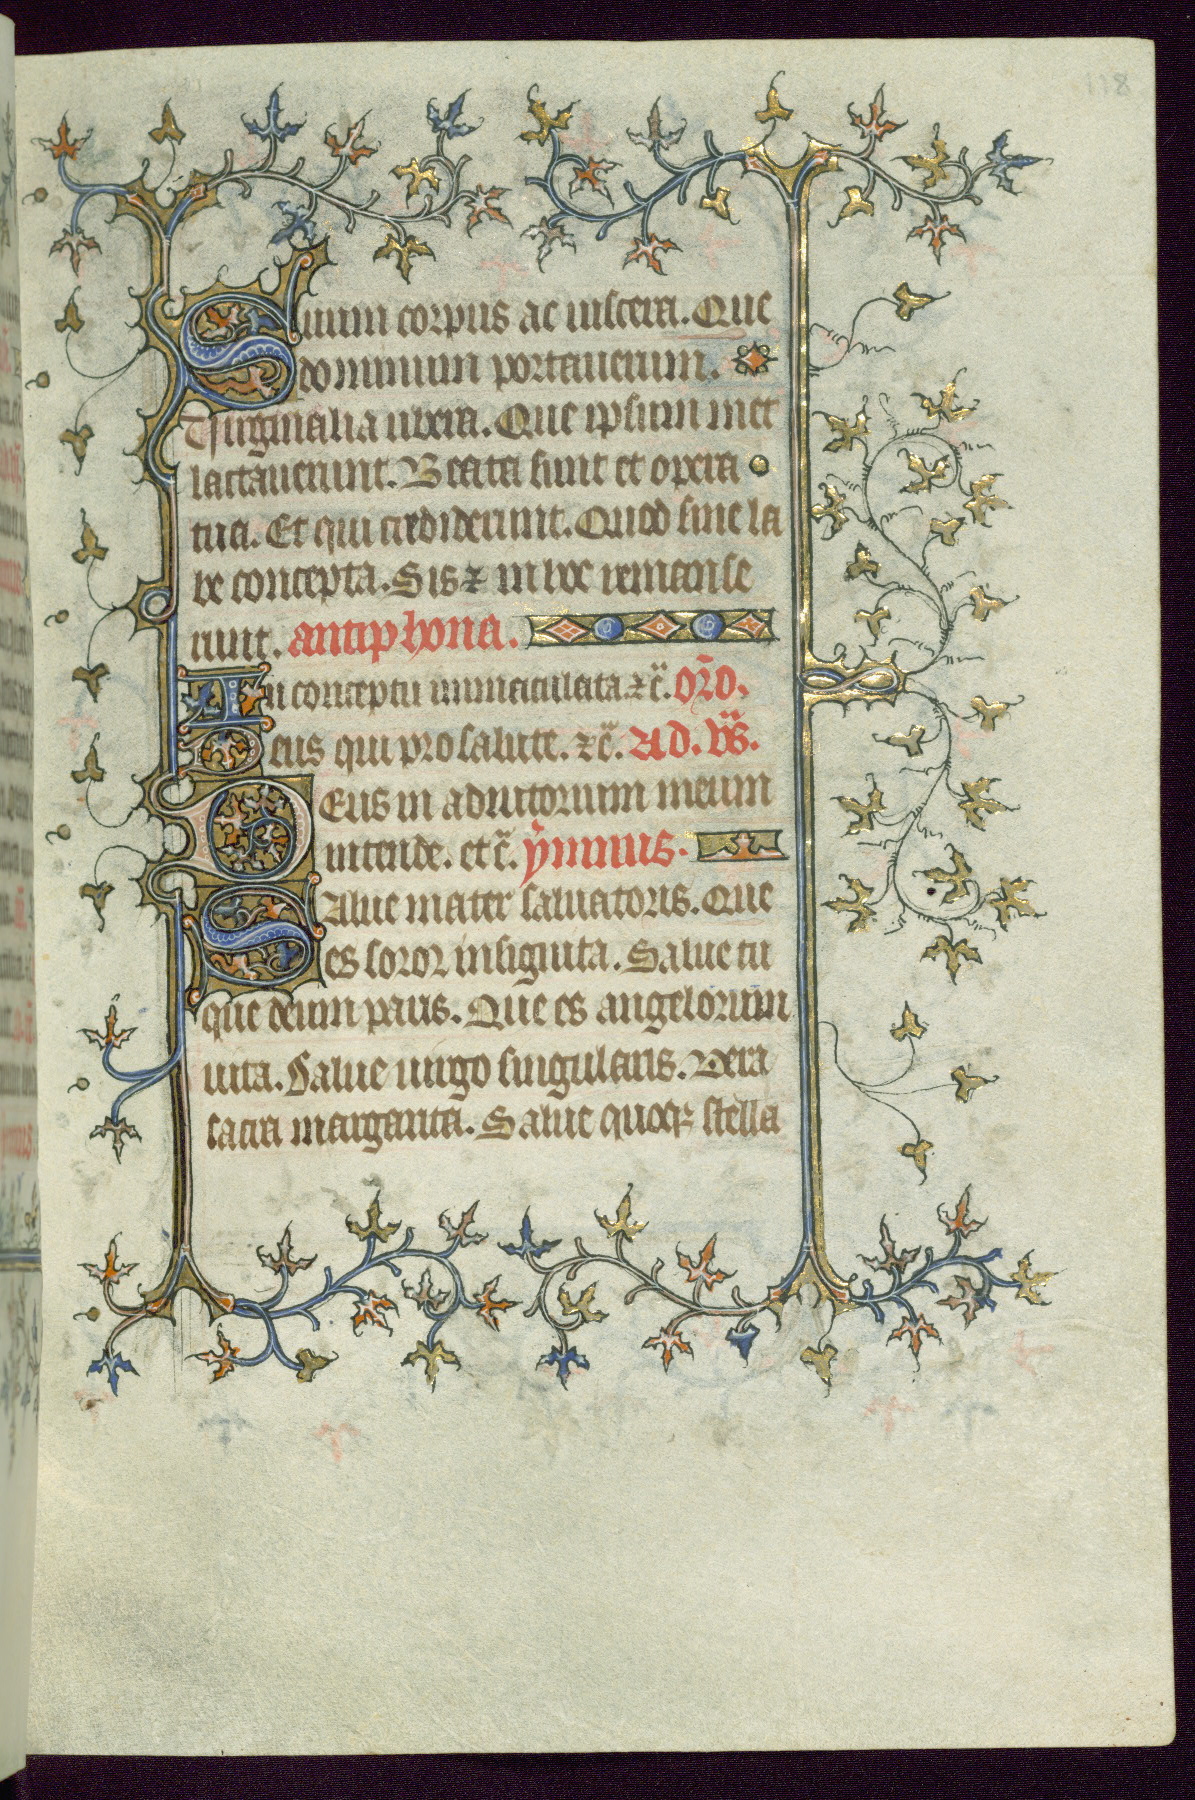 118
Suum corpus ac uiscera. Que
dominum portauerunt.
Virginalia ubera. Que ipsum met
lactauerunt. Beata sunt et opera
tua. Et qui crediderunt. Quod sine la
be concepta. Sis ⁊ in hoc remanse
runt. antiphona.
In conceptu inmaculata ⁊c̄. or̄o.
Deus qui pro salute. ⁊c̄. Ad. vs̄.
Deus in adiutorium meum
intende. et c̄. ymnus.
Salue mater saluatoris. Que
es soror insignita. Salue tu
que deum paris. Que es angelorum
uita. Salue uirgo singularis. Vera
sacra margarita. Salue quoqꝫ stella